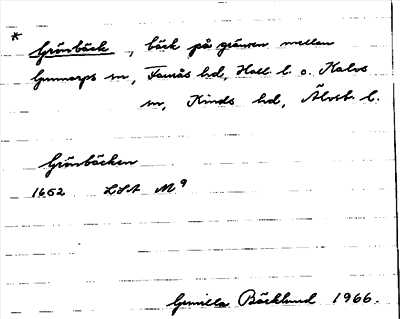 * Grönbäck, bäck på gränsen mellan
Gunnarps sn, Faurås hd, Hall. l. o. Kalvs
sn, Kinds hd, Älvsb. l.
Grönbäcken
1652 LSA M⁹
Gunilla Bäcklund 1966.